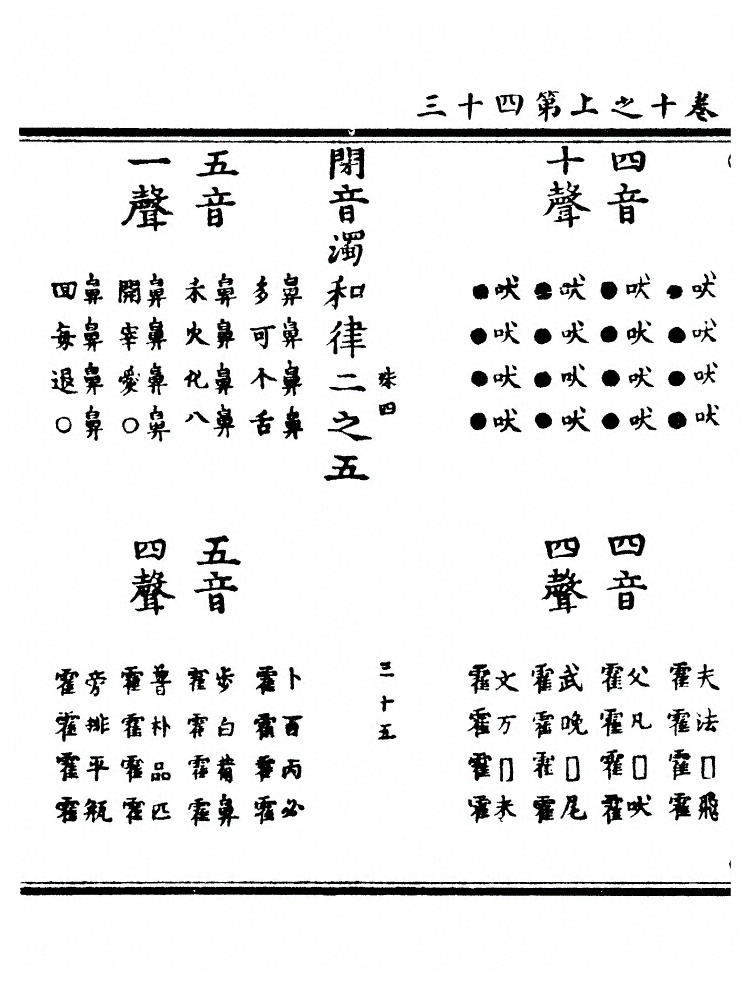 卷十之上第四十三
四音
十聲
吠吠吠吠
●●●●
吠吠吠吠
●●●●
吠吠吠吠
●●●●
吠吠吠吠
●●●●
四音
四聲
夫法□飛
霍霍霍霍
父凡□吠
霍霍霍霍
武晚□尾
霍霍霍霍
文万□未
霍霍霍霍
珠四
三十五
閉音濁和律二之五
五音
一聲
鼻鼻鼻鼻
多可个舌
鼻鼻鼻鼻
禾火化八
鼻鼻鼻鼻
開宰愛○
鼻鼻鼻鼻
回每退○
五音
四聲
卜百丙必
霍霍霍霍
步白葡鼻
霍霍霍霍
普朴品匹
霍霍霍霍
旁排平瓶
霍霍霍霍